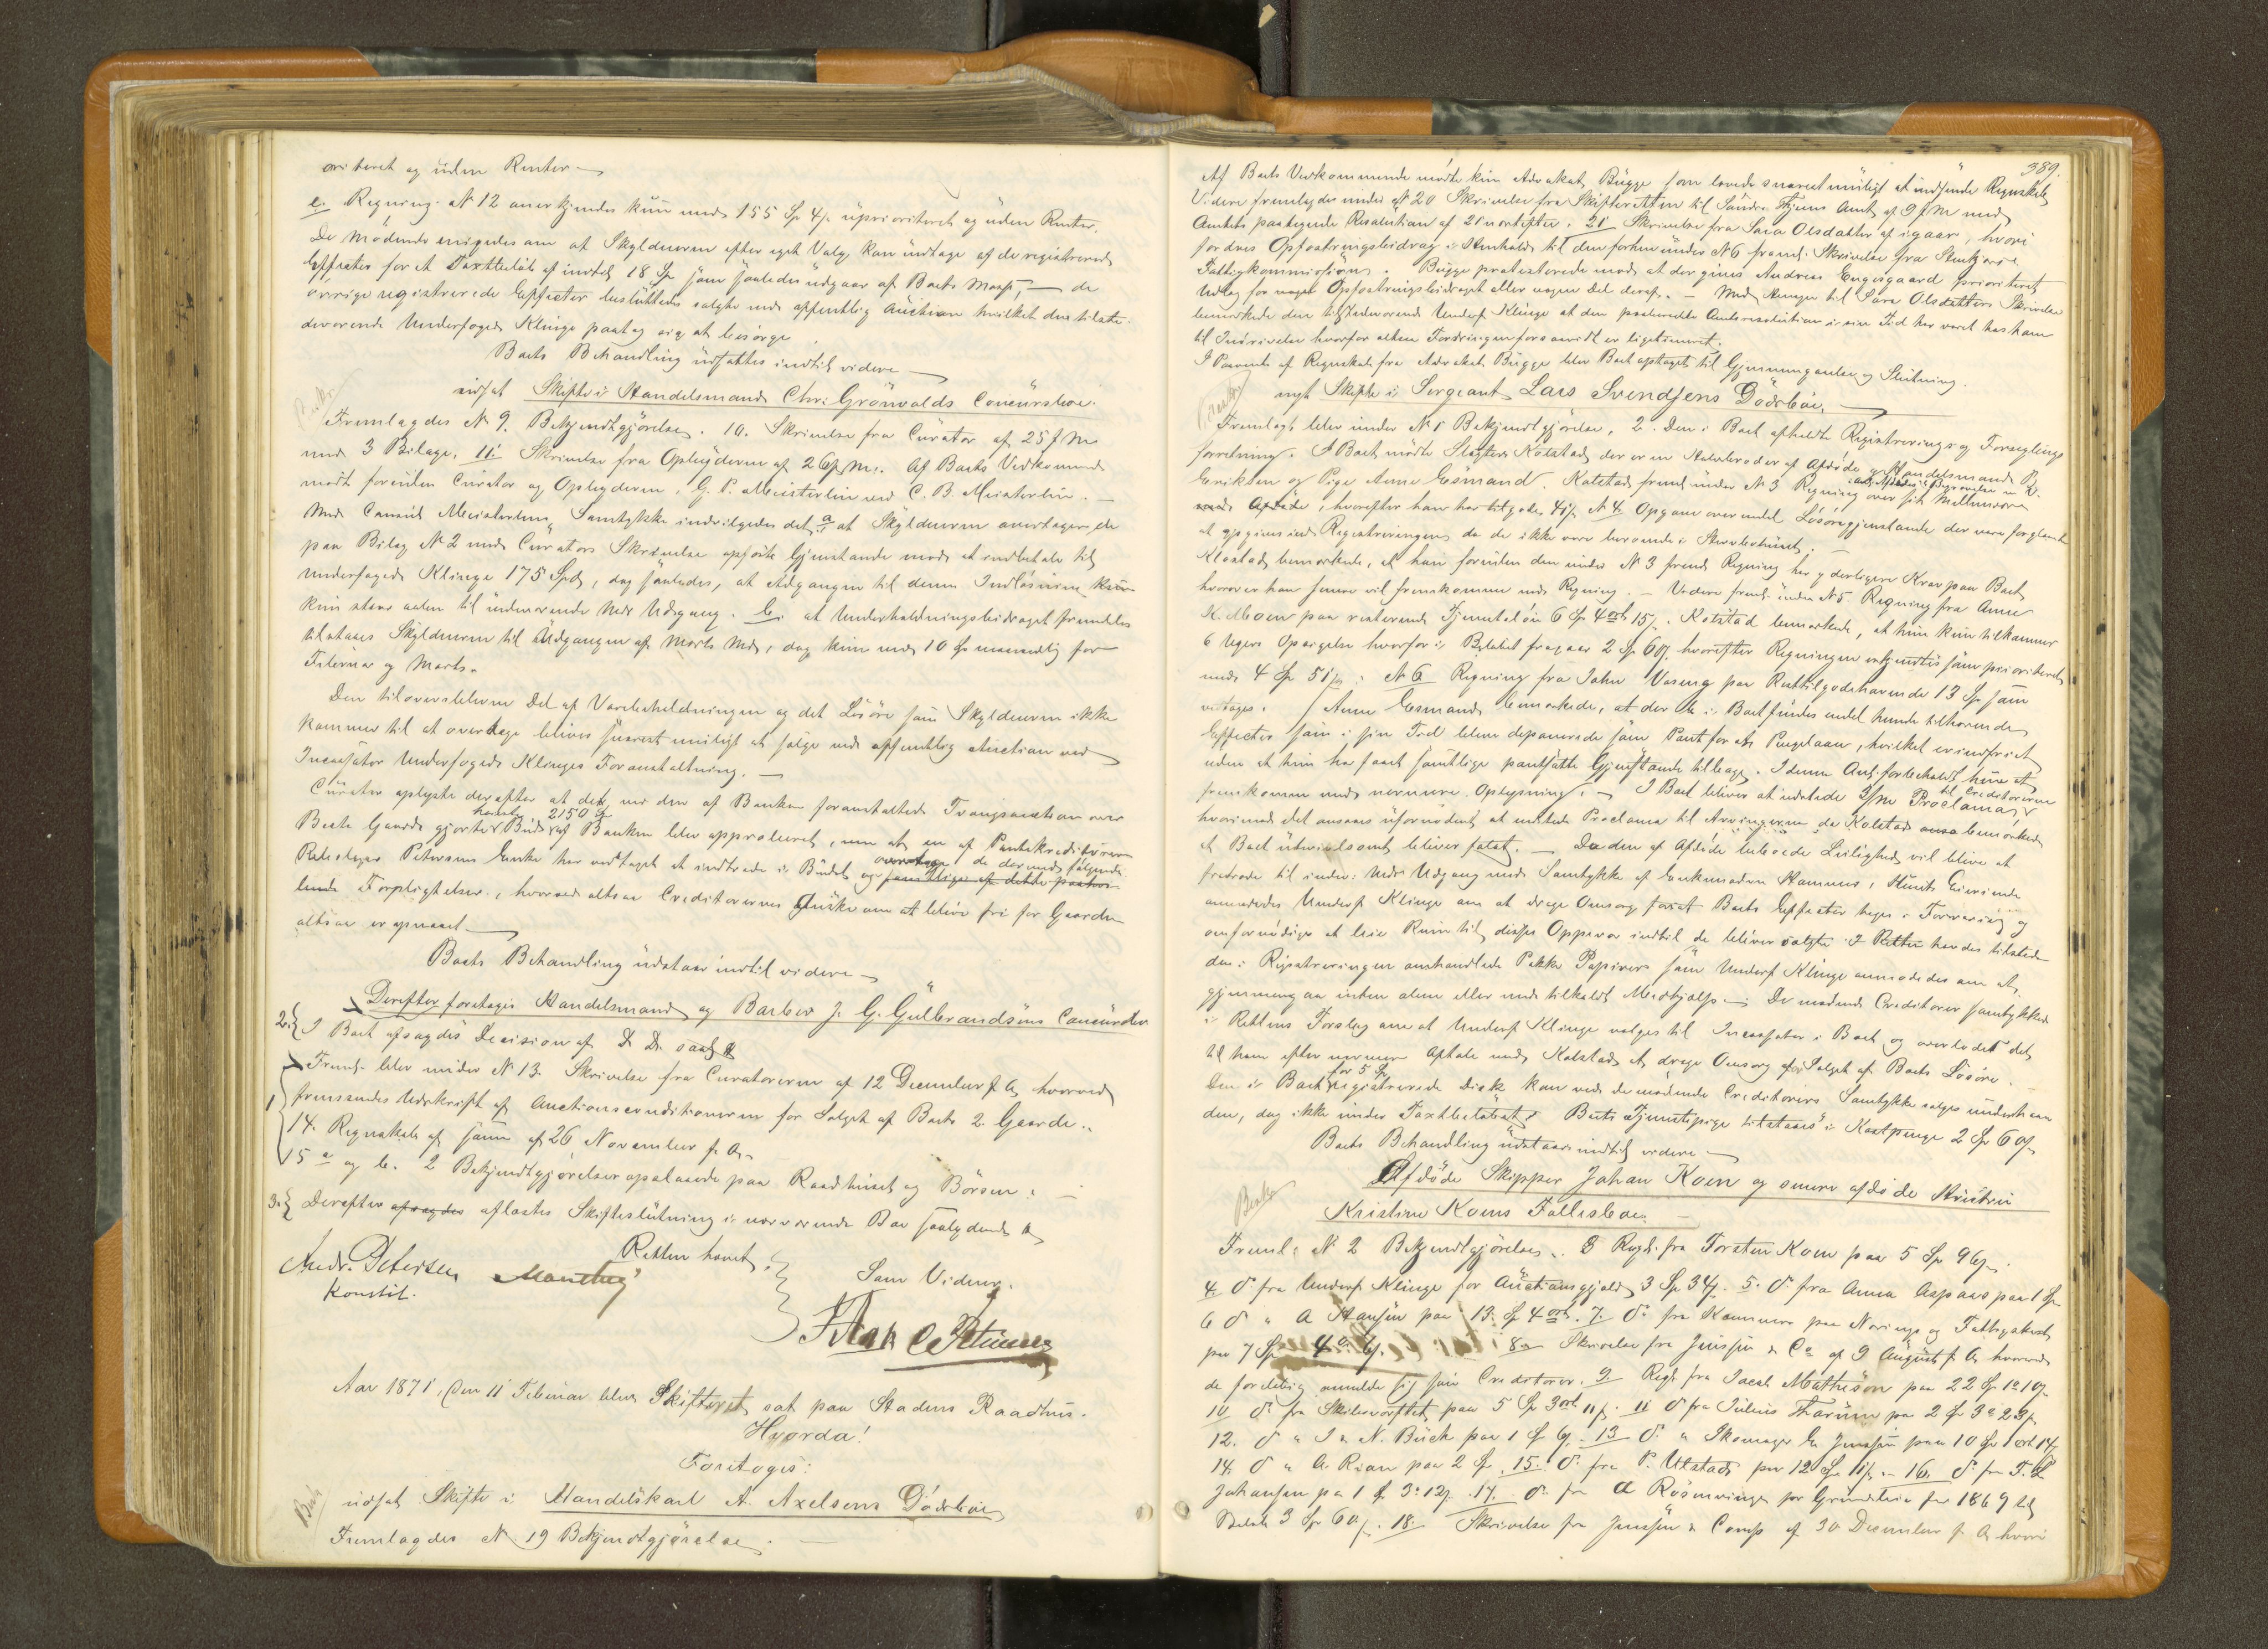 oriteret og uden Renter
e. Regning No 12 anerkjendes kun med 155 Sp 4 s. uprioriteret og uden Renter.
De Mødende enigedes om at Skyldneren efter eget Valg kan udtage af de registrerede
Effecter for et Taxtbeløb af indtil 18 Sp som saaledes udgaar af Boets Masse, de
øvrige registrerede Effecter besluttedes solgte ved offentlig Auction hvilket den tilste-
deværende Underfoged Klinge paatog sig at besørge
Boets Behandling udsattes indtil videre
udsat Skifte i Handelsmand Chr. Grønvolds Concursboe.
Fremlagdes No 9. Bekjendtgjørelse. 10. Skrivelse fra Curator af 25 f M
med 3 Bilage, 11. Skrivelse fra Opbyderen af 26 f M. Af Boets Vedkommende
mødte foruden Curator og Opbyderen, G. P. Meisterlin ved C. B. Meisterlin.
Med Consul Meisterlins Samtykke indvilgedes det, a at Skyldneren overtager de
paa Bilag No 2 med Curators Skrivelse opførte Gjenstande mod at indbetale til
Underfoged Klinge 175 Spd, dog saaledes, at Adgangen til denne Indløsning kun
kun staar aaben til indeværende Mds Udgang. b. at Underholdningsbidraget fremdeles
tilstaaes Skyldneren til Udgangen af Marts Md, dog kun med 10 Sp maanedlig for
Februar og Marts.
Den tiloversblevne Del af Varebeholdningen og det Løsøre som Skyldneren ikke
kommer til at overtage bliver snarest muligt at sælge ved offentlig Auction ved
Incassator Underfoged Klinges Foranstaltning.
Curator oplyste derefter at det, ved den af Banken foranstaltede Tvangsauction over
Boets Gaarde gjorte høieste Bud 2150 Sp af Banken blev approberet, men at en af Pantekreditorerne
Rebslager Petersens Enke har vedtaget at indtræde i Budet og overtage de dermed følgende
Forpligtelser, hvorved altsaa Creditorernes Ønske om at blive fri for Gaarden
altsaa er opnaaet.
Boets Behandling udstaar indtil videre
Derefter foretoges Handelsmand og Barber J. G. Gulbrandsens Concursboe
2. I Boet afsagdes Decision af D. D. saal.
Freml. blev under No 13. Skrivelse fra Curatorerne af 12 December f. A. hvorved
1 fremsendes Udskrift af Auctionsconditionerne for Salget af Boets 2 Gaarde.
14. Regnskab af samme af 26 November f. A.
15 a og b. 2 Bekjendtgjørelser opslaaede paa Raadhuset og Børsen.
3. Derefter afsagdes aflæstes Skifteslutning i nærværende Bo saalydende
Retten hævet.
Andr. Petersen
Konstit.
Som Vidner.
Aar 1871, den 11 Februar blev Skifteret sat paa Stadens Raadhus.
Hvorda!
Foretoges:
udsat Skifte i Handelskarl A. Axelsens Dødsboe
Fremlagdes No 19 Bekjendtgjørelse.
389.
Af Boets Vedkommende mødte kun Advokat Bugge som lovede snarest muligt at indsende Regnskab
Videre fremlagdes under No 20 Skrivelse fra Skifteretten til Søndre Thjems Amt af 9 f M med
Amtets paategnede Resolution af 21 næstefter. 21 Skrivelse fra Sara Olsdatter af igaar, hvori
fordres Opfostringsbidrag i Henhold til den forhen under No 6 freml. Skrivelse fra Stenkjærs
Fattigkommission. Bugge protesterede mod at der gives Andreas Engesgaard prioriteret
Udlæg for noget Opfostringsbidraget eller nogen Del deraf. Med Hensyn til Sara Olsdatters Skrivelse
bemærkede den tilstedeværende Underf Klinge at den paaberaabte Amtsresolution i sin Tid har været hos ham
til Inddrivelse hvorfor altsaa Fordringen forsaavidt er legitimeret.
I Paavente af Regnskab fra Advokat Bugge blev Boet optaget til Gjennemgaaelse og Slutning.
nyt Skifte i Sergeant Lars Svendsens Dødsboe,
Fremlagt blev under No 1 Bekjendtgjørelse, 2. Den i Boet afholdte Registrerings og Forseglings
forretning. I Boet mødte Slagter Kolstad der er en Halvbroder af Afdøde og Handelsmand P.
Eriksen og Pige Anne Esmand. Kolstad freml under No 3 Regning over sit Mellemværende
med Afdøde, hvorefter han har tilgode, No 4 Opgave over endel Løsøregjenstande der vare forglemt
at opgives ved Registreringen da de ikke vare beroende i Stervbohuset.
Kolstad bemærkede, at han foruden den under No 3 freml Regning har yderligere Krav paa Boet
hvorover han senere vil fremkomme med Regning. Videre freml. under No 5. Regning fra Anne
H. Moen paa resterende Tjenerløn 6 Sp 4 ort 15 s. Kolstad bemærkede, at hun kun tilkommer
6 Ugers Opsigelse hvorfor i Beløbet fragaar 2 Sp 60 s. hvorefter Regningen vedtoges som prioriteret
med 4 Sp 51 s. No 6 Regning fra John Vaseng paa Resttilgodehavende 13 Sp som
vedtoges. Anne Esmand bemærkede, at der i Boet findes endel hende tilhørende
Effecter som i sin Tid bleve deponerede som Pant for et Pengelaan, hvilket er indfriet
uden at hun har faaet samtlige pantsatte Gjenstande tilbage. I denne Anl. forbeholdt hun at
fremkomme med nærmere Oplysning. I Boet bliver at udstede 3/m Proclama til Creditorerne
hvorimod det ansaaes ufornødent at udstede Proclama til Arvingerne da Kolstad bemærkede
at Boet utvivlsomt bliver fallit. Da den af Afdøde beboede Leilighed vil blive at
fratræde til inden: Mds Udgang med Samtykke af Enkemadam Hammer, Husets Eierinde
anmodedes Underf Klinge om at drage Omsorg for at Boets Effecter tages i Forvaring og
om fornødiges at leie Rum til disses Opbevaring indtil de bliver solgte. I Retten havdes tilstede
den i Registreringen omhandlede Pakke Papirer som Underf Klinge anmodedes om at
gjennemgaa enten alene eller med tilkaldt Medhjælp. De mødende Creditorer samtykkede
i Rettens Forslag om at Underf Klinge vælges til Incassator i Boet og overlodes det
til ham efter nærmere Aftale med Kolstad at drage Omsorg for Salget af Boets Løsøre.
Den i Boet for 5 Sp registrerede Disk kan ved de mødende Creditorers Samtykke sælges underhaan-
den, dog ikke under Taxtbeløbet. Boets Tjenestepige tilstaaes i Kostpenge 2 Sp 60 s
Boets Behandling udstaar indtil videre
Afdøde Skipper Johan Koen og senere afdøde Hustru
Kristine Koens Fællesboe.
Freml. No 2 Bekjendtgjørelse. 3 Regn. fra Torsten Koen paa 5 Sp 96 s.
4. do fra Underf Klinge for Auctionsgjæld 3 Sp 34 s. 5. do fra Anna Aspaas paa 1 Sp
6 do " A Hansen paa 13 Sp 4 ort. 7. do fra Kæmneren paa Nærings og Fattigskat
paa 7 Sp 4 o 6 s. 8 Skrivelse fra Jenssen & Co af 9 August f. A. hvorved
de foreløbig anmelde sig som Creditorer. 9. Regn. fra Jacob Mathison paa 22 Sp 1 o 10 s.
10 do fra Skibsværftet paa 5 Sp 3 ort 11 s. 11 do fra Julius Tharum paa 2 Sp 3 o 23 s.
12. do " I. & N. Buch paa 1 Sp 6 s. 13 do " Skomager E. Jenssen paa 10 Sp 1 ort 14 s
14. do " A. Rian paa 2 Sp. 15. do fra P. Ulstad paa 12 Sp 11 s. 16. do fra F. L
Johansen paa 1 Sp 3 o 12 s. 17. do fra A Rosenvinge for Grundleie for 1869 til
Beløb 3 Sp 60 s. 18. Skrivelse fra Jenssen & Comp af 30 December f. A. hvori